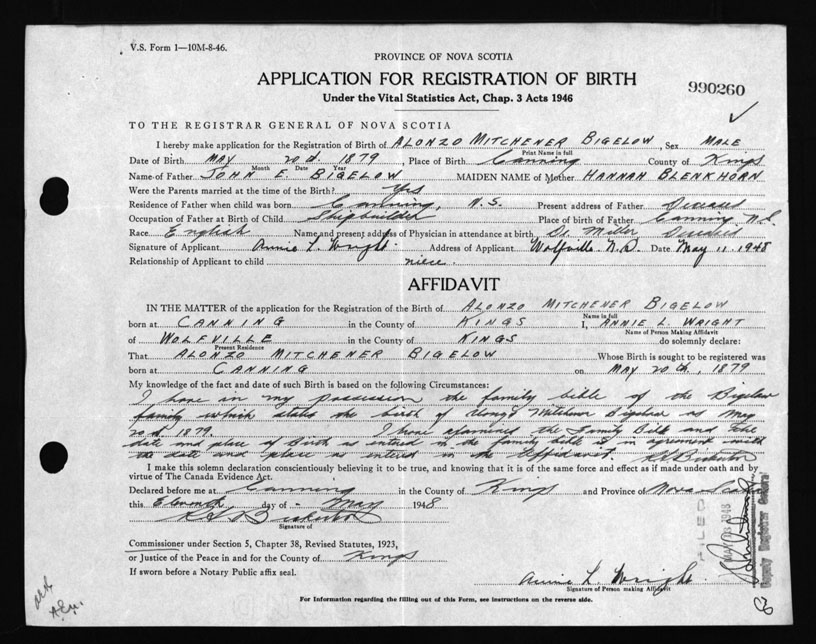 V.S. Form 1—10M-8-46.
PROVINCE OF NOVA SCOTIA
APPLICATION FOR REGISTRATION OF BIRTH
990260
Under the Vital Statistics Act, Chap. 3 Acts 1946
TO THE REGISTRAR GENERAL OF NOVA SCOTIA
I hereby make application for the Registration of Birth of ALONZO MITCHENER BIGELOW, Sex MALE
Print Name in full
Date of Birth MAY 20 d. 1879, Place of Birth Canning County of Kings
Month Date Year
Name of Father JOHN E. BIGELOW MAIDEN NAME of Mother HANNAH BLENKHORN
Were the Parents married at the time of the Birth? Yes
Residence of Father when child was born Canning, N.S. Present address of Father Deceased
Occupation of Father at Birth of Child Shipbuilder Place of birth of Father Canning N.S.
Race English Name and present address of Physician in attendance at birth Dr. Miller Deceased
Signature of Applicant Annie L. Wright Address of Applicant Wolfville Date May 11 1948
Relationship of Applicant to child niece.
AFFIDAVIT
IN THE MATTER of the application for the Registration of the Birth of ALONZO MITCHENER BIGELOW
Name in full
born at CANNING in the County of KINGS I, ANNIE L. WRIGHT
Name of Person Making Affidavit
of WOLFVILLE in the County of KINGS do solemnly declare:
Present Residence
That ALONZO MITCHENER BIGELOW Whose Birth is sought to be registered was
born at CANNING on MAY 20 th, 1879
My knowledge of the fact and date of such Birth is based on the following Circumstances:
I have in my possession the family bible of the Bigelow
family which states the birth of Alonzo Mitchener Bigelow as May
20 d 1879. I have examined the Family Bible and the
date and place of Birth as entered in the family bible is in agreement with
the date and place as entered in the Affidavit.
I make this solemn declaration conscientiously believing it to be true, and knowing that it is of the same force and effect as if made under oath and by
virtue of The Canada Evidence Act.
Declared before me at Canning in the County of Kings and Province of Nova Scotia
this Eleventh day of May 1948
Signature of
Commissioner under Section 5, Chapter 38, Revised Statutes, 1923,
or Justice of the Peace in and for the County of Kings
If sworn before a Notary Public affix seal.
Annie L. Wright.
Signature of Person making Affidavit
For Information regarding the filling out of this Form, see instructions on the reverse side.
FILED
Deputy Registrar General